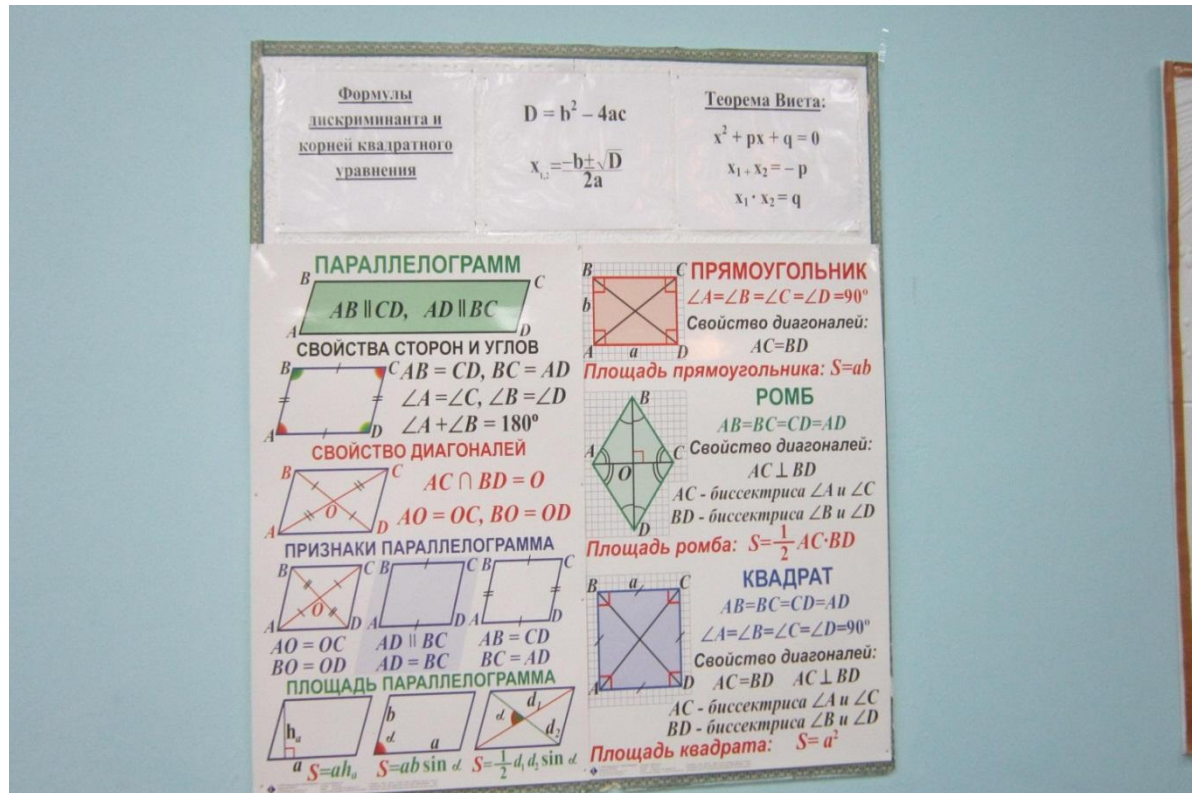 Формулы
дискриминанта и
корней квадратного
уравнения
D = b² – 4ac
x₁,₂ = (–b ± √D) / 2a
Теорема Виета:
x² + px + q = 0
x₁ + x₂ = – p
x₁ · x₂ = q
ПАРАЛЛЕЛОГРАММ
B C
AB ∥ CD, AD ∥ BC
A D
СВОЙСТВА СТОРОН И УГЛОВ
B C
AB = CD, BC = AD
∠A = ∠C, ∠B = ∠D
∠A + ∠B = 180°
A D
СВОЙСТВО ДИАГОНАЛЕЙ
B C
AC ∩ BD = O
O
AO = OC, BO = OD
A D
ПРИЗНАКИ ПАРАЛЛЕЛОГРАММА
B C B C B C
O
A D A D A D
AO = OC
BO = OD
AD ∥ BC
AD = BC
AB = CD
BC = AD
ПЛОЩАДЬ ПАРАЛЛЕЛОГРАММА
hₐ
a
S=ahₐ
b
α a
S=ab sin α
α d₁
d₂
S=½ d₁d₂ sin α
ПРЯМОУГОЛЬНИК
B C
b
A a D
∠A=∠B=∠C=∠D=90°
Свойство диагоналей:
AC=BD
Площадь прямоугольника: S=ab
РОМБ
B
A C
O
D
AB=BC=CD=AD
Свойство диагоналей:
AC ⊥ BD
AC - биссектриса ∠A и ∠C
BD - биссектриса ∠B и ∠D
Площадь ромба: S=½ AC·BD
КВАДРАТ
B a C
A D
AB=BC=CD=AD
∠A=∠B=∠C=∠D=90°
Свойство диагоналей:
AC=BD AC ⊥ BD
AC - биссектриса ∠A и ∠C
BD - биссектриса ∠B и ∠D
Площадь квадрата: S= a²